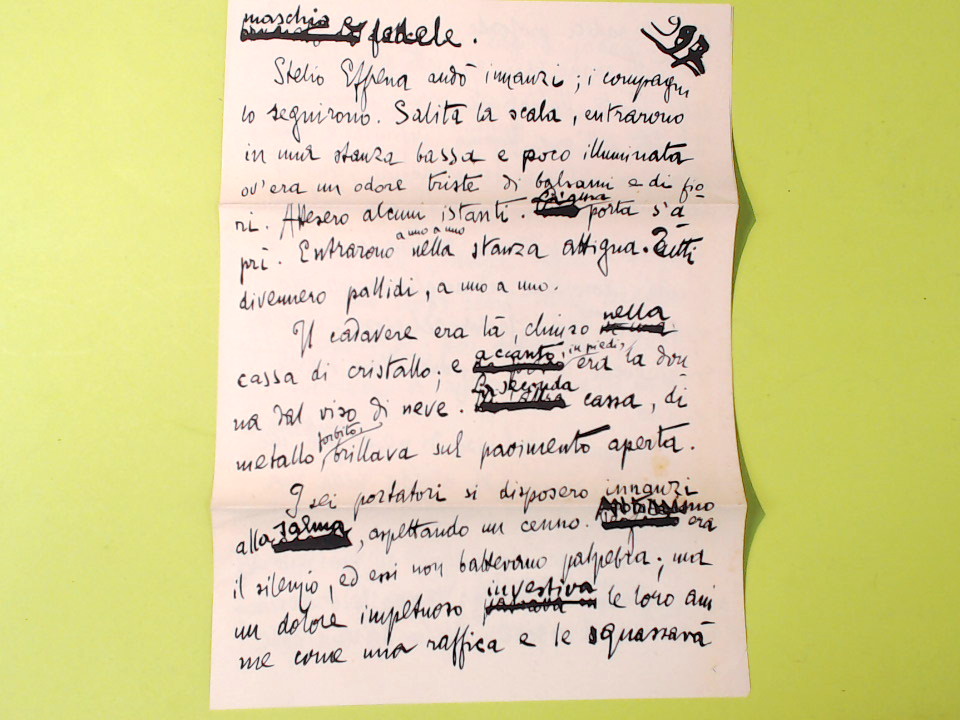 maschio e fedele.
Stelio Effrena andò innanzi; i compagni
lo seguirono. Salita la scala, entrarono
in una stanza bassa e poco illuminata
ov'era un odore triste di balsami e di fio-
ri. Attesero alcuni istanti. La porta s'a
prì. Entrarono a uno a uno nella stanza attigua. Tutti
divennero pallidi, a uno a uno.
Il cadavere era là, chiuso nella
cassa di cristallo; e accanto, in piedi, era la don
na dal viso di neve. La seconda cassa, di
metallo forbito, brillava sul pavimento aperta.
I sei portatori si disposero innanzi
alla salma, aspettando un cenno. Altissimo era
il silenzio, ed essi non battevano palpebra; ma
un dolore impetuoso investiva le loro ani
me come una raffica e le squassava